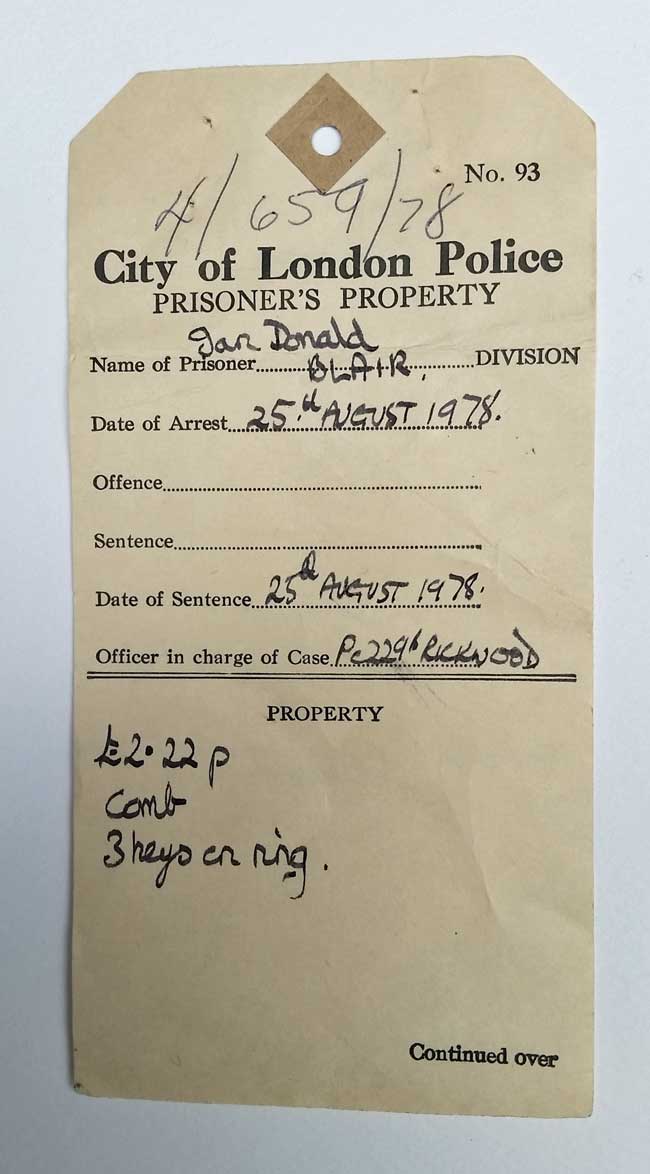 No. 93
4/659/78
City of London Police
PRISONER'S PROPERTY
Ian Donald
Name of Prisoner BLAIR. DIVISION
Date of Arrest 25.d AUGUST 1978.
Offence
Sentence
Date of Sentence 25d AUGUST 1978.
Officer in charge of Case Pc RICKWOOD
PROPERTY
£2.22p
Comb
3 keys on ring.
Continued over